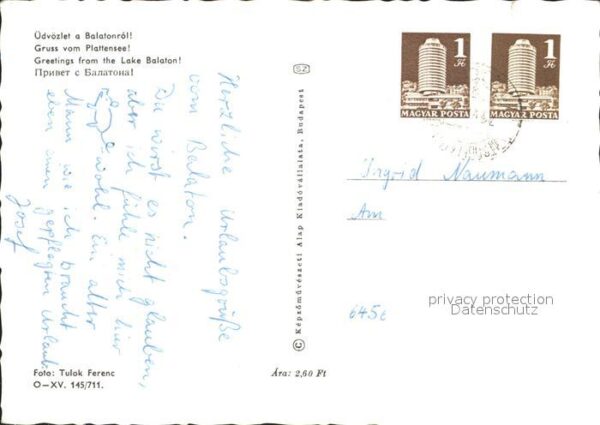 Üdvözlet a Balatonról!
Gruss vom Plattensee!
Greetings from the Lake Balaton!
Привет с Балатона!
Herzliche Urlaubsgrüße
vom Balaton.
Du wirst es nicht glauben,
aber ich fühle mich hier
wohl. Ein alter
Mann wie ich braucht
eben einen gepflegten Urlaub.
Josef
Foto: Tulok Ferenc
O—XV. 145/711.
Ára: 2,60 Ft
SZ
© Képzőművészeti Alap Kiadóvállalata, Budapest
1 Ft
MAGYAR POSTA
1 Ft
MAGYAR POSTA
Ingrid Naumann
Am
645
privacy protection
Datenschutz